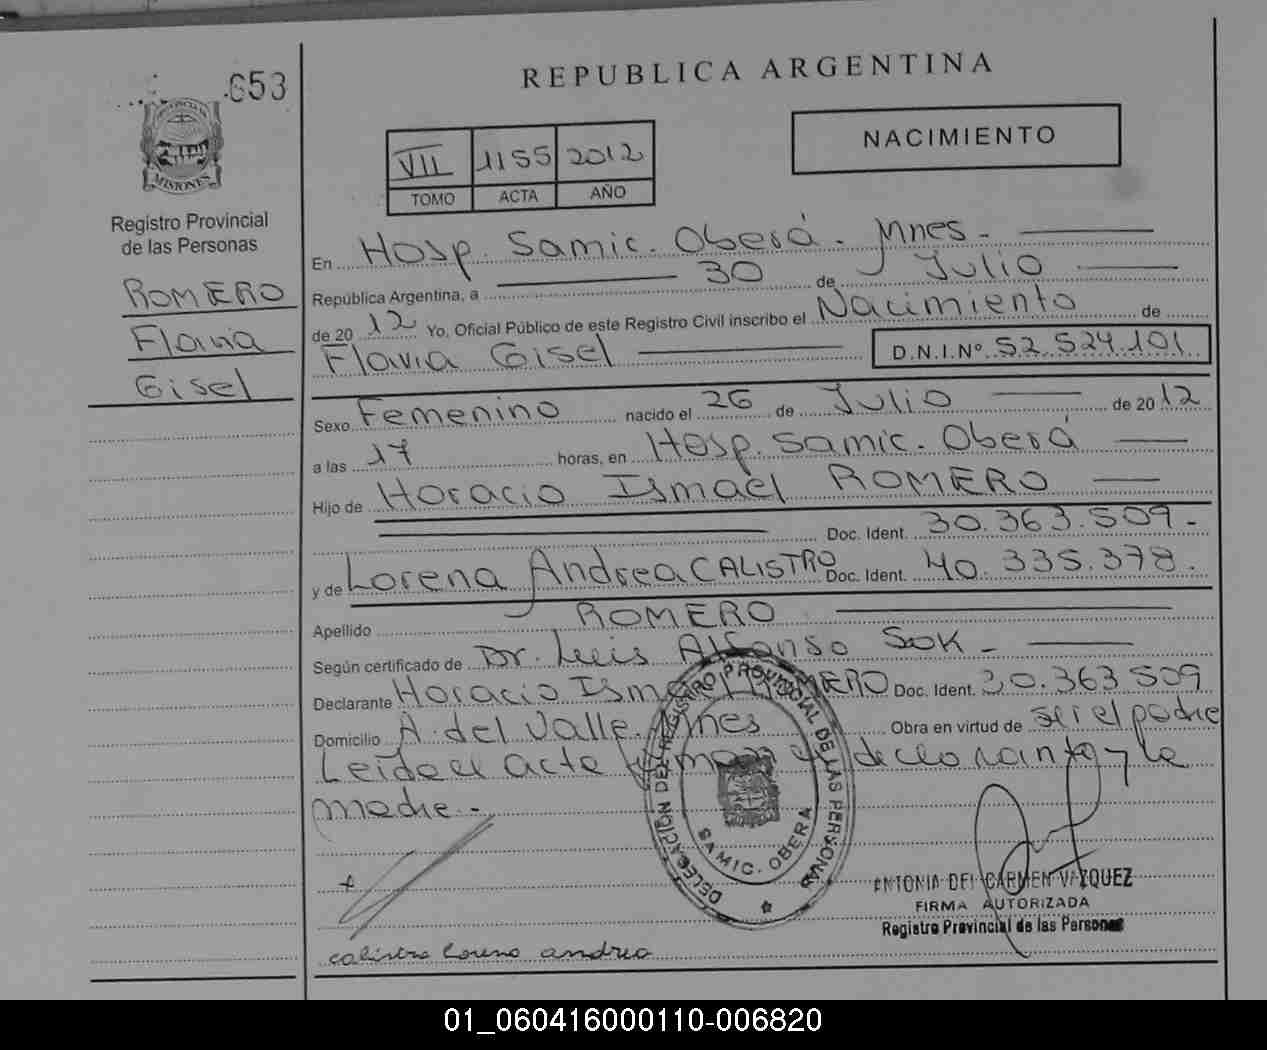 653
REPUBLICA ARGENTINA
NACIMIENTO
VII 1155 2012
TOMO ACTA AÑO
PROVINCIA DE
MISIONES
Registro Provincial
de las Personas
ROMERO
Flavia
Gisel
En Hosp. Samic. Oberá. Mnes.
República Argentina, a 30 de Julio
de 20 12 Yo, Oficial Público de este Registro Civil inscribo el Nacimiento de
Flavia Gisel D.N.I.Nº 52.524.101
Sexo Femenino nacido el 26 de Julio de 20 12
a las 17 horas, en Hosp. Samic. Oberá
Hijo de Horacio Ismael ROMERO
Doc. Ident. 30.363.509.
y de Lorena Andrea CALISTRO Doc. Ident. 40.335.378.
Apellido ROMERO
Según certificado de Dr. Luis Alfonso SOK
Declarante Horacio Ismael ROMERO Doc. Ident. 30.363 509
Domicilio A. del Valle. Mnes Obra en virtud de ser el padre
Leída el acta firman el declarante y la
madre.
DELEGACIÓN DEL REGISTRO PROVINCIAL DE LAS PERSONAS
SAMIC. OBERA
ANTONIA DEL CARMEN VAZQUEZ
FIRMA AUTORIZADA
Registro Provincial de las Personas
calistro lorena andrea
01_060416000110-006820